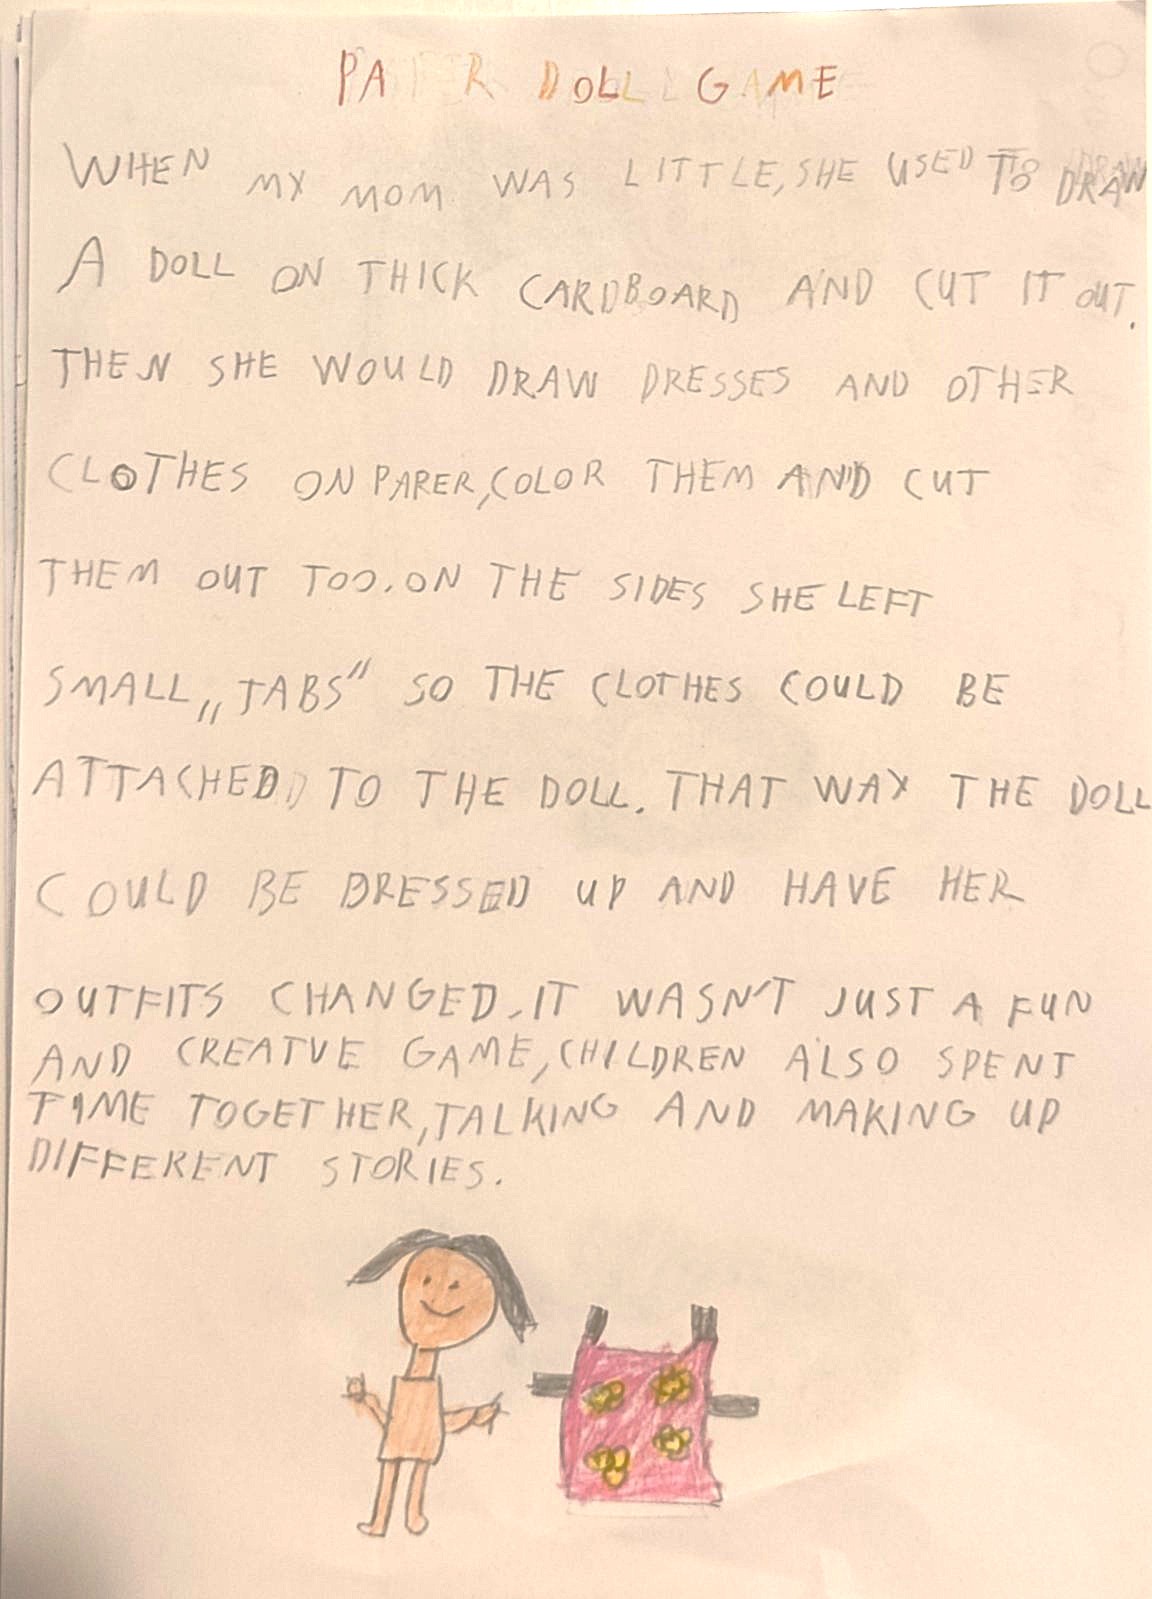 PAPER DOLL GAME
WHEN MY MOM WAS LITTLE, SHE USED TO DRAW
A DOLL ON THICK CARDBOARD AND CUT IT OUT.
THEN SHE WOULD DRAW DRESSES AND OTHER
CLOTHES ON PAPER, COLOR THEM AND CUT
THEM OUT TOO. ON THE SIDES SHE LEFT
SMALL „TABS" SO THE CLOTHES COULD BE
ATTACHED TO THE DOLL. THAT WAY THE DOLL
COULD BE DRESSED UP AND HAVE HER
OUTFITS CHANGED. IT WASN'T JUST A FUN
AND CREATVE GAME, CHILDREN ALSO SPENT
TIME TOGETHER, TALKING AND MAKING UP
DIFFERENT STORIES.